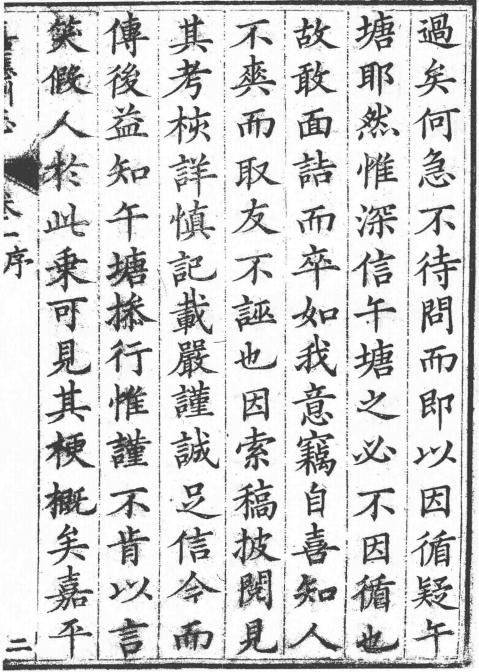 過矣何急不待問而即以因循疑午
塘耶然惟深信午塘之必不因循也
故敢面詰而卒如我意竊自喜知人
不爽而取友不誣也因索稿披閱見
其考校詳慎記載嚴謹誠足信今而
傳後益知午塘操行惟謹不肯以言
笑假人於此乗可見其梗概矣嘉平
卷一序 二